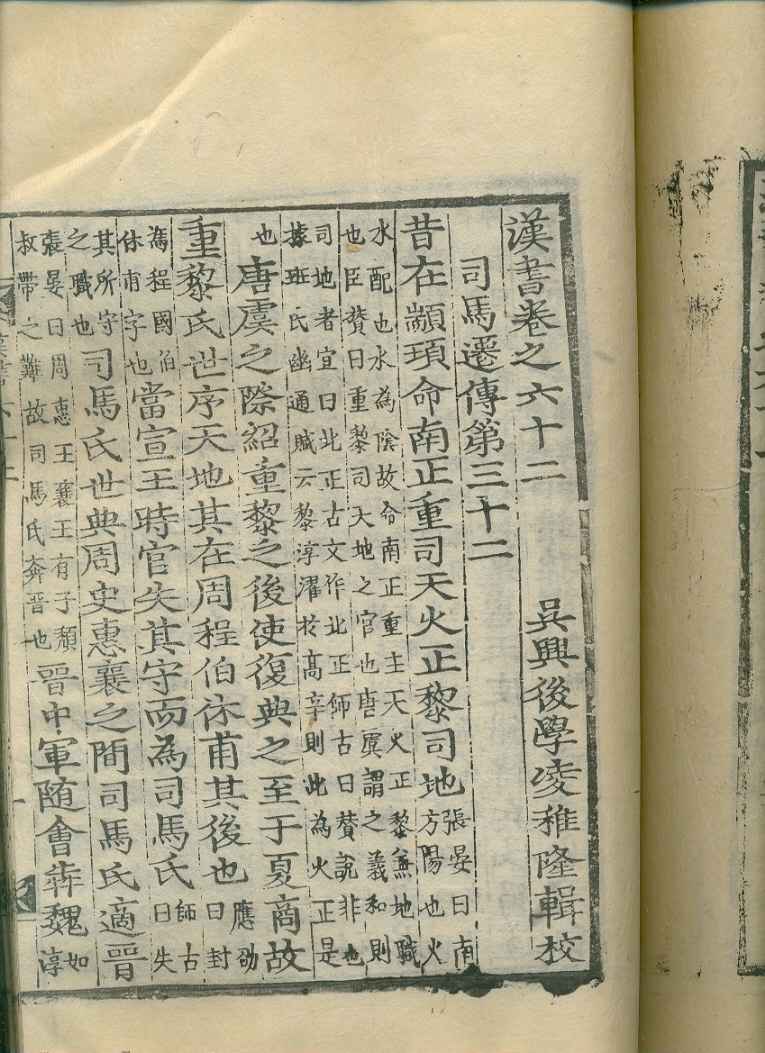 漢書卷之六十二
吳興後學凌稚隆輯校
司馬遷傳第三十二
昔在顓頊命南正重司天火正黎司地
張晏曰南
方陽也火
水配也水為陰故命南正重主天火正黎兼地職
也臣賛曰重黎司天地之官也唐虞謂之義和則
司地者宜曰北正古文作北正師古曰賛說非也
據班氏幽通賦云黎淳濯於高辛則此為火正是
也
唐虞之際紹重黎之後使復典之至于夏商故
重黎氏世序天地其在周程伯休甫其後也
應劭
曰封
為程國伯
休甫字也
當宣王時官失其守而為司馬氏
師古
曰失
其所守
之職也
司馬氏世典周史惠襄之間司馬氏適晉
張晏曰周惠王襄王有子頹
叔帶之難故司馬氏奔晉也
晉中軍随會犇魏
如
淳